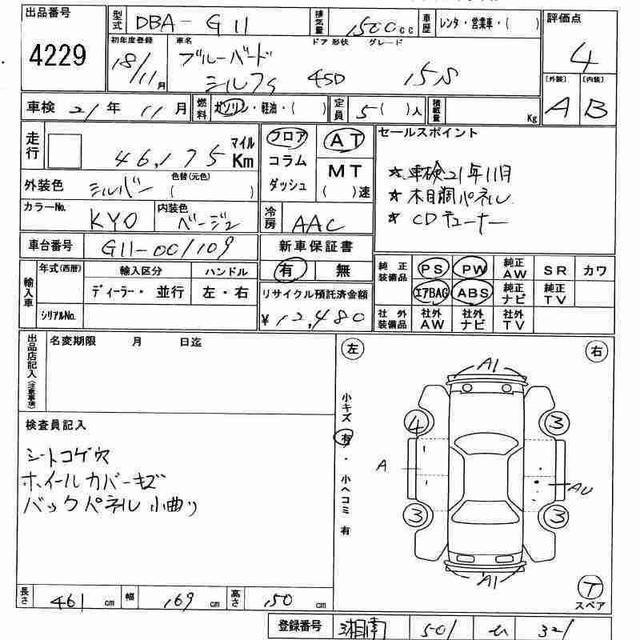 出品番号 型式 DBA-G11 排気量 1500cc 車歴 レンタ・営業車・( ) 評価点
4229 初年度登録 車名 ドア 形状 グレード 4
18/11月 ブルーバード シルフィ 4SD 15S [外装] [内装]
A B
車検 21年 11月 燃料 ガソリン・軽油・( ) 定員 5( )人 積載量 Kg
走行 46,175 マイル Km フロア コラム ダッシュ AT MT ( )速
セールスポイント
★車検21年11日
★木目調パネル
★CDチューナー
外装色 シルバー 色替(元色) ( )
カラーNo. KY0 内装色 ベージュ 冷房 AAC
車台番号 G11-001109 新車保証書
有 無
輸入車 年式(西暦) 輸入区分 ハンドル
ディーラー・並行 左・右
シリアルNo.
リサイクル預託済金額
¥12,480
純正装備品 PS PW 純正AW SR カワ
エアBAG ABS 純正ナビ 純正TV
社外装備品 社外AW 社外ナビ 社外TV
出品店記入 (注意事項) 名変期限 月 日迄
検査員記入
シートコゲ穴
ホイールカバーキズ
バックパネル小曲り
左 右
小キズ 有・小ヘコミ 有
A1
4 3
A AU
3 3
A1
T
スペア
長さ 461 cm 幅 169 cm 高さ 150 cm
登録番号 湘南 501 321